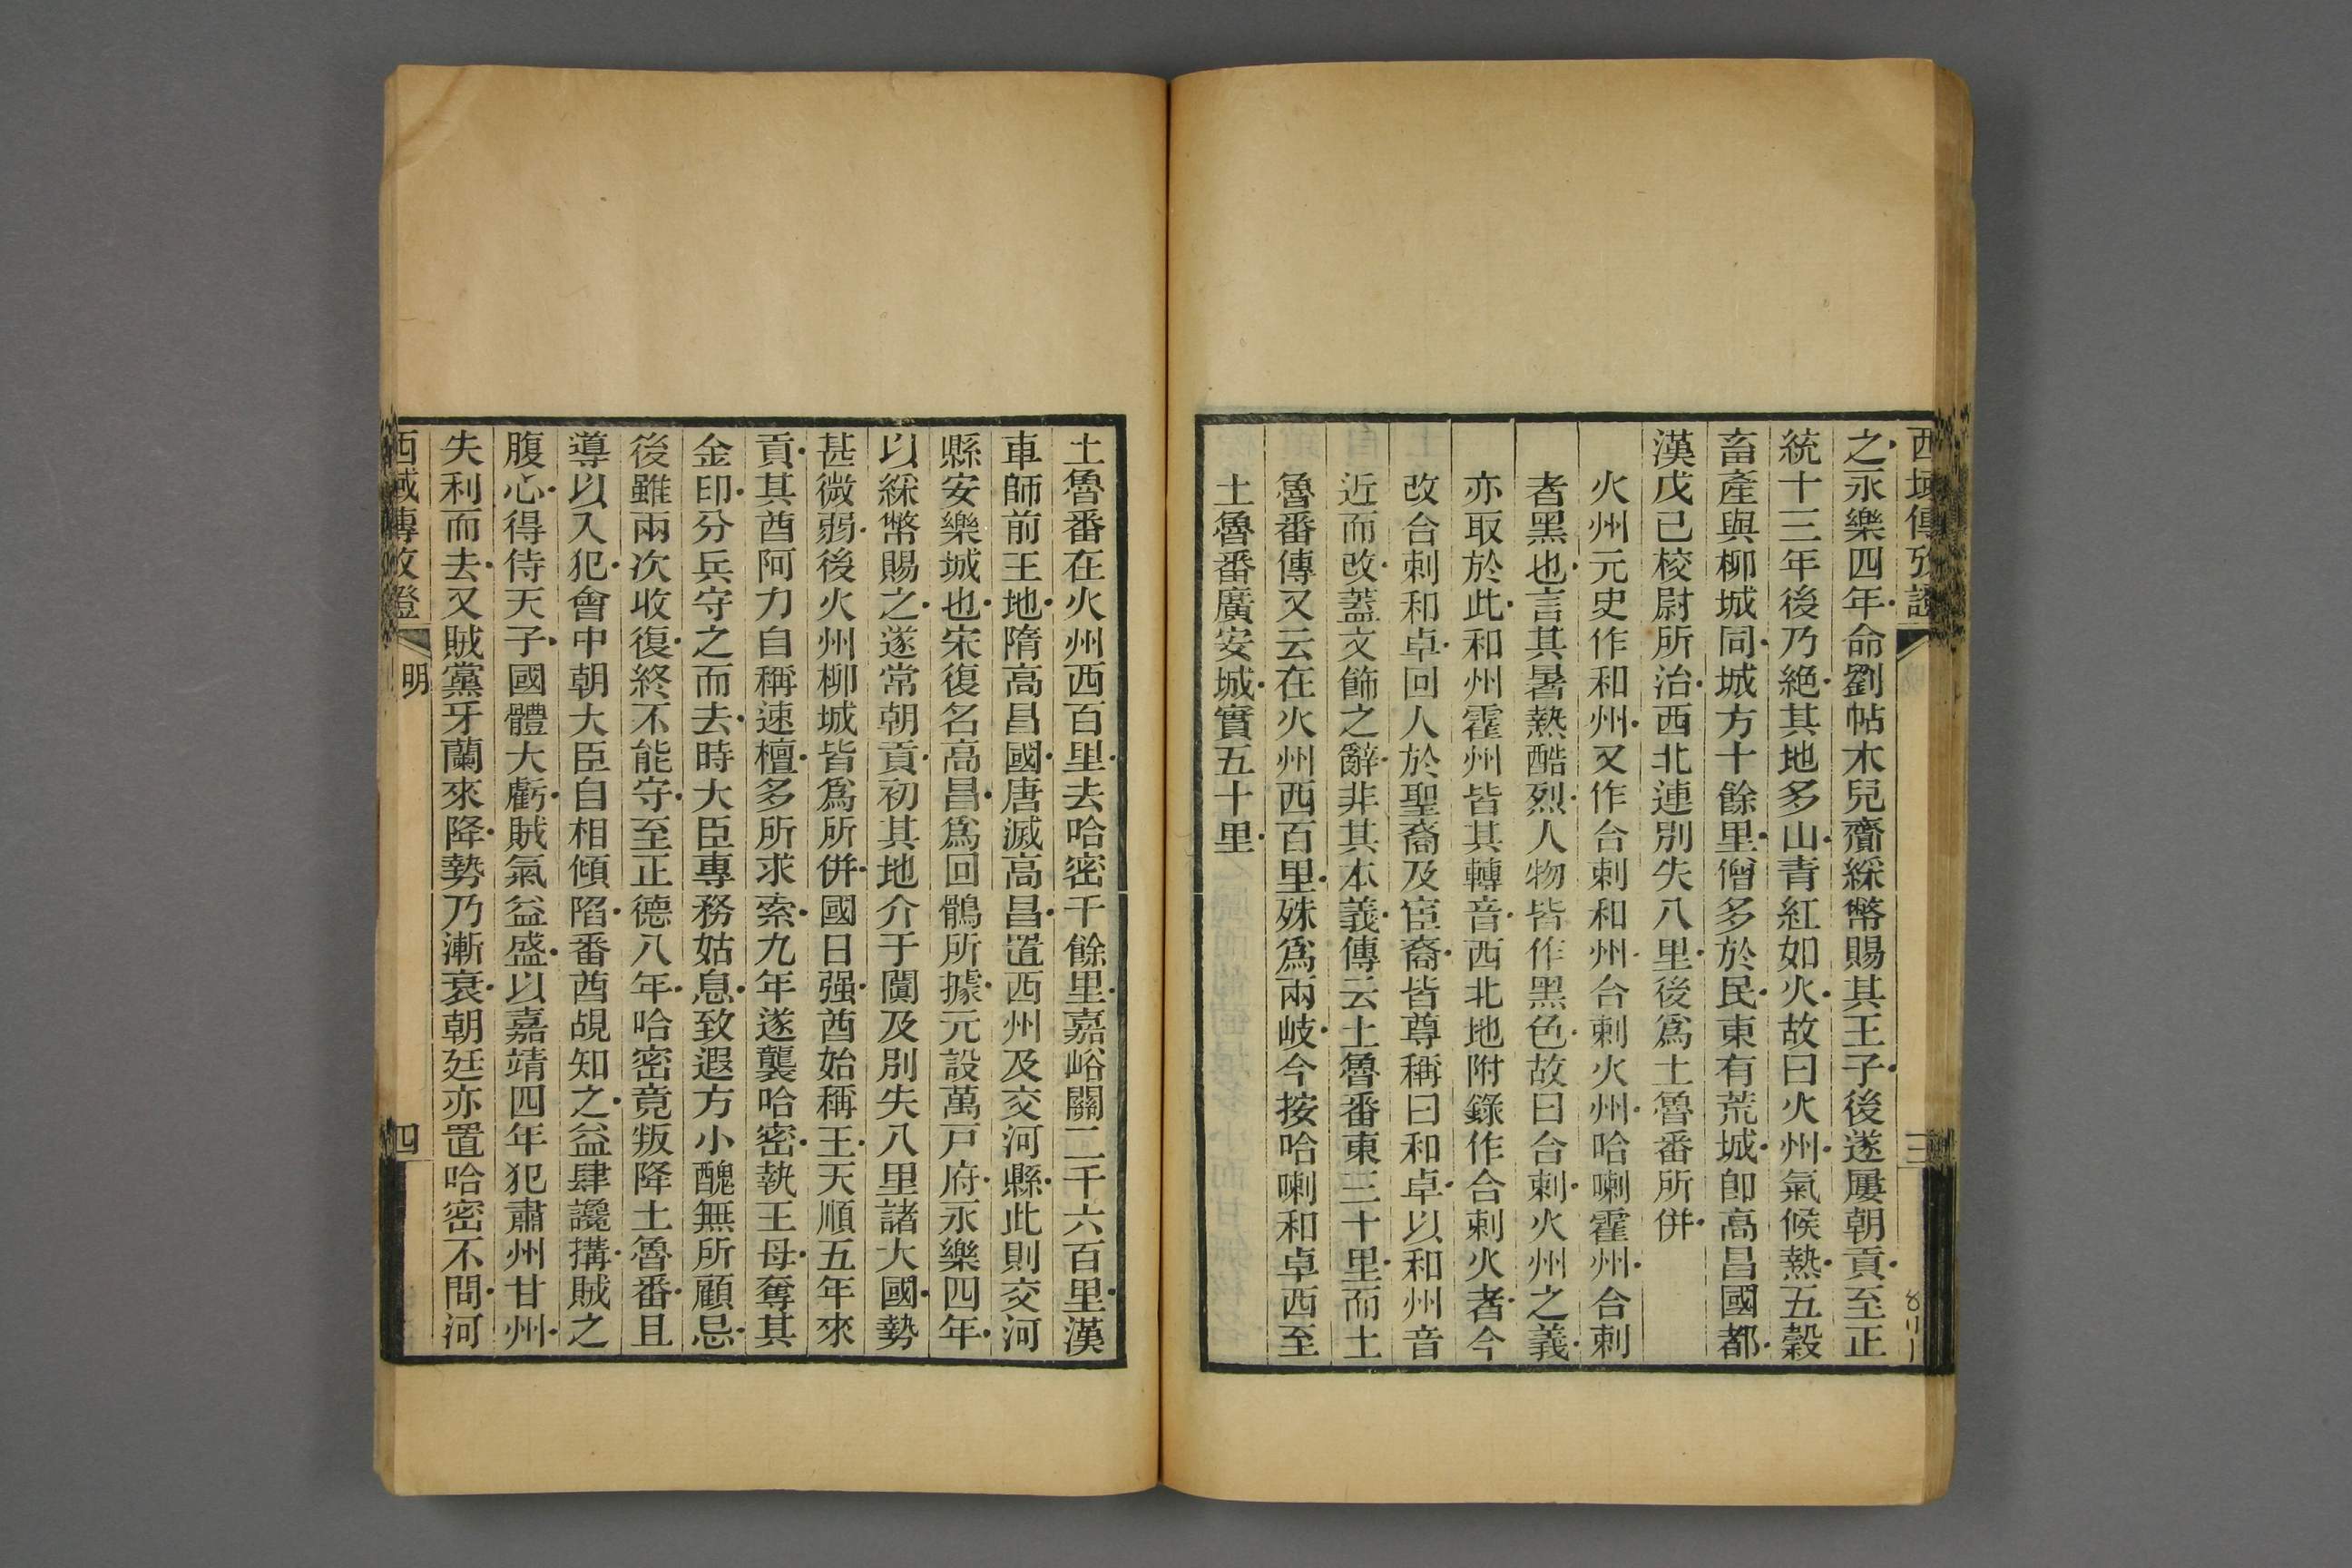 西域傳攷證
三
之永樂四年命劉帖木兒齎綵幣賜其王子後遂屢朝貢至正
統十三年後乃絶其地多山青紅如火故曰火州氣候熱五穀
畜產與柳城同城方十餘里僧多於民東有荒城卽高昌國都
漢戊已校尉所治西北連別失八里後爲土魯番所併
火州元史作和州又作合剌和州合剌火州哈喇霍州合剌
者黑也言其暑熱酷烈人物皆作黑色故曰合剌火州之義
亦取於此和州霍州皆其轉音西北地附錄作合剌火者今
改合剌和卓回人於聖裔及宦裔皆尊稱曰和卓以和州音
近而改蓋文飾之辭非其本義傳云土魯番東三十里而土
魯番傳又云在火州西百里殊爲兩岐今按哈喇和卓西至
土魯番廣安城實五十里
土魯番在火州西百里去哈密千餘里嘉峪關二千六百里漢
車師前王地隋高昌國唐滅高昌置西州及交河縣此則交河
縣安樂城也宋復名高昌爲回鶻所據元設萬戸府永樂四年
以綵幣賜之遂常朝貢初其地介于闐及別失八里諸大國勢
甚微弱後火州柳城皆爲所併國日强酋始稱王天順五年來
貢其酋阿力自稱速檀多所求索九年遂襲哈密執王母奪其
金印分兵守之而去時大臣專務姑息致遐方小醜無所顧忌
後雖兩次收復終不能守至正德八年哈密竟叛降土魯番且
導以入犯會中朝大臣自相傾陷番酋覘知之益肆讒搆賊之
腹心得侍天子國體大虧賊氣益盛以嘉靖四年犯肅州甘州
失利而去又賊黨牙蘭來降勢乃漸衰朝廷亦置哈密不問河
西域傳攷證
明
四